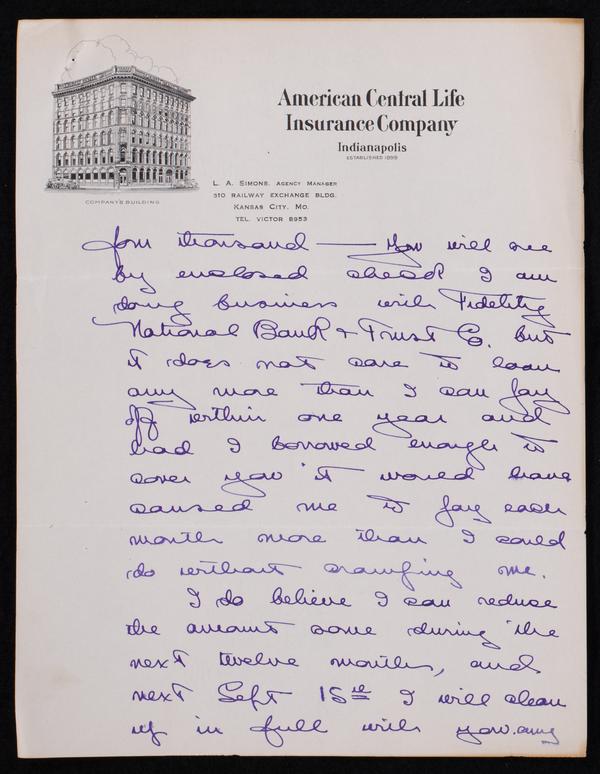 American Central Life
Insurance Company
Indianapolis
ESTABLISHED 1899
COMPANY'S BUILDING
L. A. SIMONS, AGENCY MANAGER
310 RAILWAY EXCHANGE BLDG.
KANSAS CITY, MO.
TEL. VICTOR 8953
four thousand — You will see
by enclosed check I am
doing business with Fidelity
National Bank & Trust Co. but
it does not care to loan
any more than I can pay
off within one year and
had I borrowed enough to
cover you it would have
caused me to pay each
month more than I could
do without cramping me.
I do believe I can reduce
the amount some during the
next twelve months, and
next Sept 15th I will clean
up in full with you. any